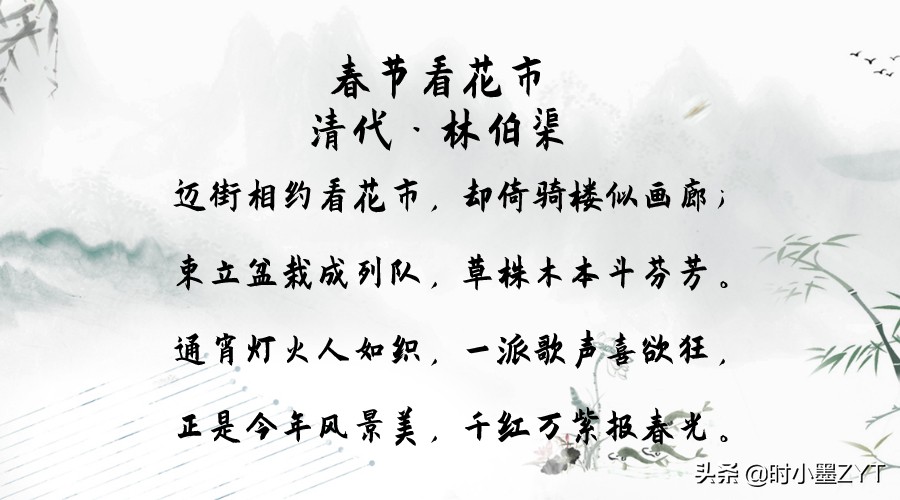 春节看花市
清代·林伯渠
迈街相约看花市，却倚骑楼似画廊；
束立盆栽成列队，草株木本斗芬芳。
通宵灯火人如织，一派歌声喜欲狂，
正是今年风景美，千红万紫报春光。
头条 @时小墨ZYT